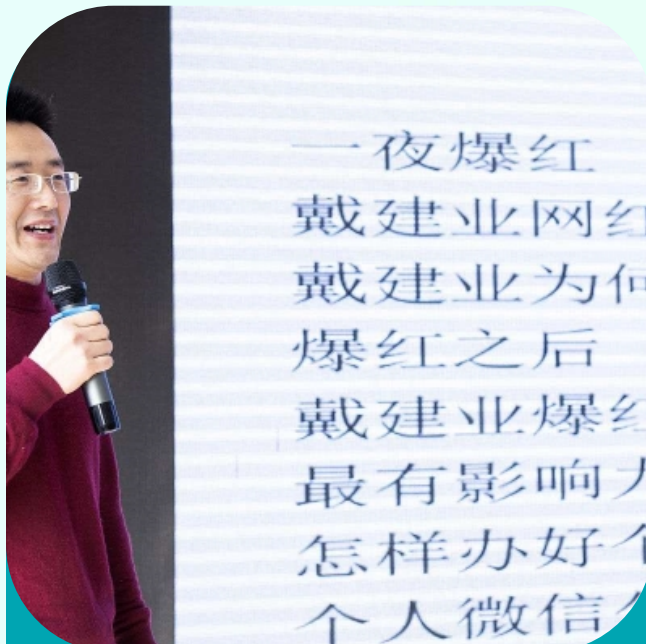 一夜爆红
戴建业网红
戴建业为何
爆红之后
戴建业爆红
最有影响力
怎样办好个
个人微信